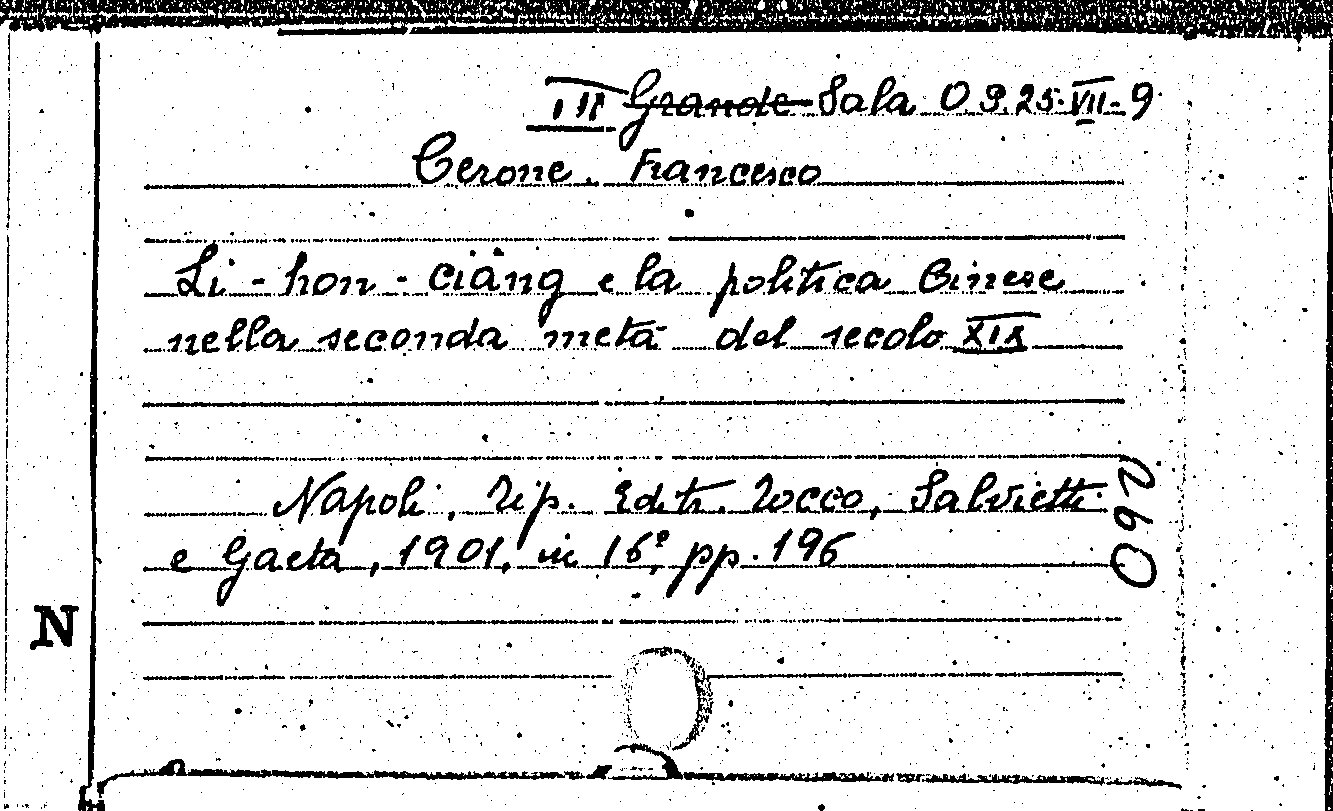 III Grande Sala O 9.25.VII-9
Cerone. Francesco
Li-hon-ciang e la politica Cinese
nella seconda metà del secolo XIX
Napoli, Tip. Editr. Tocco, Salvietti
e Gaeta, 1901, in 16º, pp. 196
260
N